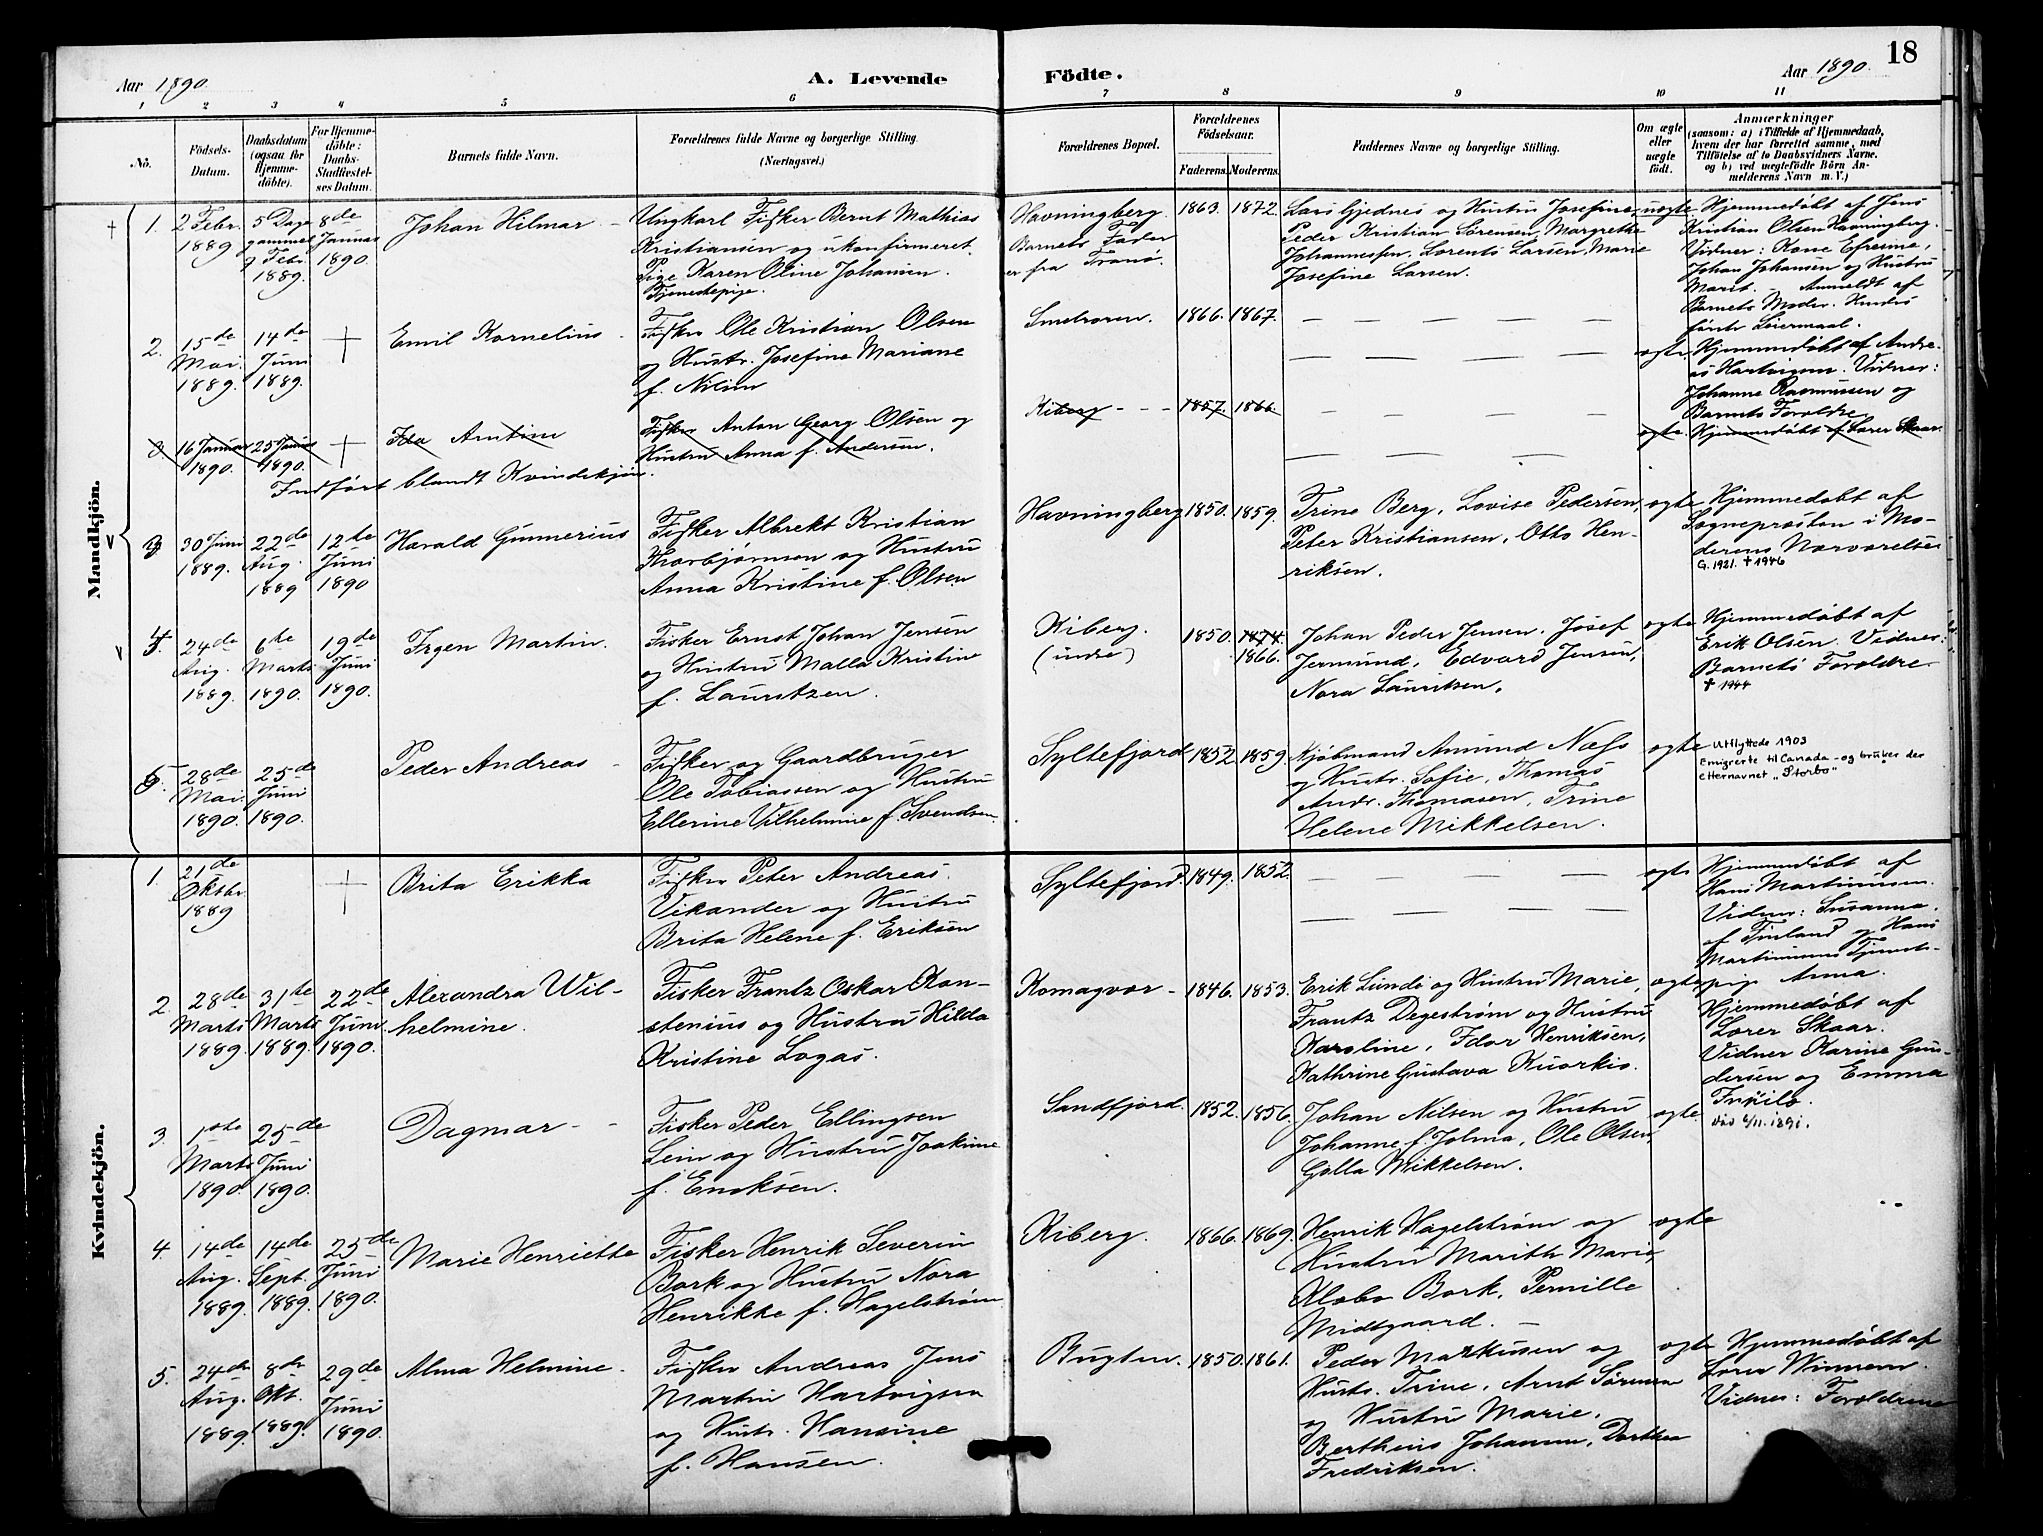 18
Aar 1890.
A. Levende
Födte.
Aar 1890.
1 2 3 4 5 6 7 8 9 10 11
No.
Födsels-
Datum.
Daabsdatum
(ogsaa for
Hjemme-
döbte).
For Hjemme-
döbte:
Daabs-
Stadfæstel-
ses Datum.
Barnets fulde Navn.
Forældrenes fulde Navne og borgerlige Stilling.
(Næringsvei.)
Forældrenes Bopæl.
Forældrenes
Födselsaar.
Faderens. Moderens.
Faddernes Navne og borgerlige Stilling.
Om ægte
eller
uægte
födt.
Anmærkninger
(saasom: a) i Tilfælde af Hjemmedaab,
hvem der har forrettet samme, med
Tilföielse af to Daabsvidners Navne.
og b) ved uægtefödte Börn An-
melderens Navn m. V.)
Mandkjön.
1.
2 Febr.
1889
5 Dage
gammel
7 Febr.
1889.
8de
Januar
1890.
Johan Hilmar
Ungkarl Fisker Bernt Mathias
Kristiansen og ukonfirmeret
Pige Karen Oline Johansen.
Tjenestepige.
Havningberg.
Barnets Fader
er fra Tranø.
1863. 1872.
Lars Gjednes og Hustru Josefine,
Peder Kristian Sørensen, Margrethe
Johannessen, Lorents Larsen, Marie
Josefine Larsen.
uægte
Hjemmedøbt af Jens
Kristian Olsen Havningberg.
Vidner: Kone Efresine,
Johan Johansen og Hustru
Marit. - Anmeldt af
Barnets Moder. Hendes
første Leiermaal.
2.
15de
Mai.
1889.
14de
Juni
1889.
Emil Kornelius
Fisker Ole Kristian Olsen
og Hustr. Josefine Mariane
f. Nilsen
Smelroren.
1866. 1867.
ægte
Hjemmedøbt af Andre-
as Hartvigsen. Vidner:
Johanne Rasmussen og
Barnets Forældre.
3
16 Januar
1890.
25 Januar
1890.
Ida Arntine
Fisker Anton Georg Olsen og
Hustru Anna f. Andersen.
Kiberg
1857. 1866.
ægte
Hjemmedøbt af Lærer Skaar.
Indført blandt Kvindekjøn.
3
30 Juni
1889.
22de
Aug.
1889
12te
Juni
1890
Harald Gunnerius
Fisker Albrekt Kristian
Thorbjørnsen og Hustru
Anna Kristine f. Olsen
Havningberg
1850. 1859.
Trine Berg, Lovise Pedersen,
Peter Kristiansen, Otto Hen-
riksen.
ægte
Hjemmedøbt af
Sognepræsten i Mo-
derens Nærværelse
G. 1921. † 1946
4.
24de
Aug.
1889.
6te
Marts
1890.
19de
Juni
1890.
Jrgen Martin.
Fisker Ernst Johan Jensen
og Hustru Malla Kristine
f. Lauritzen.
Kiberg.
(indre)
1850. 1874.
1866.
Johan Peder Jensen. Josef
Jermund, Edvard Jensen,
Nora Lauritsen.
ægte
Hjemmedøbt af
Erik Olsen. Vidner:
Barnets Forældre.
† 1944
5.
28de
Mai.
1890.
25de
Juni
1890.
Peder Andreas
Fisker og Gaardbruger
Ole Tobiassen og Hustru
Ellerine Vilhelmine f. Svendsen.
Syltefjord
1852 1859.
Kjøbmand Amund Næss
og Hustr. Sofie, Thomas
Andr. Thomasen, Trine
Helene Mikkelsen.
ægte
Utflyttede 1903
Emigrerte til Canada - og bruker der
etternavnet „Storbo"
Kvindekjön.
1.
21de
Oktbr.
1889
Brita Erikka
Fisker Peter Andreas
Vikander og Hustru
Brita Helene f. Eriksen
Syltefjord.
1849. 1852.
ægte
Hjemmedøbt af
Hans Martinusen.
Vidner: Susanna,
af Finland og Hans
Martinusens Tjeneste-
pige Anna.
2.
28de
Marts
1889.
31te
Marts
1889.
22de
Juni
1890.
Alexandra Wil-
helmine.
Fisker Frantz Oskar Kon-
stenius og Hustru Hilda
Kristine Logas.
Komagvær
1846. 1853.
Erik Lundo og Hustru Marie,
Frantz Degestrøm og Hustru
Karoline, Idor Henriksen,
Kathrine Gustava Kuorkis.
ægte
Hjemmedøbt af
Lærer Skaar.
Vidner Karine Gun-
dersen og Emma
død 6/11. 1891.
3.
1ste
Marts
1890.
25de
Juni
1890.
Dagmar
Fisker Peder Ellingsen
Lein og Hustru Joakime
f. Enoksen.
Sandfjord.
1852. 1856.
Johan Nilsen og Hustru
Johanne f. Jolma, Ole Olsen,
Golla Mikkelsen.
ægte.
4.
14de
Aug.
1889.
14de
Sept.
1889.
25de
Juni
1890.
Marie Henriette
Fisker Henrik Severin
Bork og Hustru Nora
Henrikke f. Hagelstrøm
Kiberg.
1866. 1869.
Henrik Hagelstrøm og
Hustru Marith Marie,
Klobo Bork, Pernille
Midtgaard.
ægte
5.
24de
Aug.
1889.
8de
Okt.
1889.
29de
Juni
1890.
Alma Helmine.
Fisker Andreas Jens
Martin Hartvigsen
og Hustr. Hansine
f. Hansen.
Bugten.
1850. 1861.
Peder Markusen og
Hustr. Trine, Arnt Sørensen
og Hustru Marie,
Berthins Johannsen, Dorthea
Fredriksen.
ægte
Hjemmedøbt af
Lærer Winnem.
Vidner: Forældrene